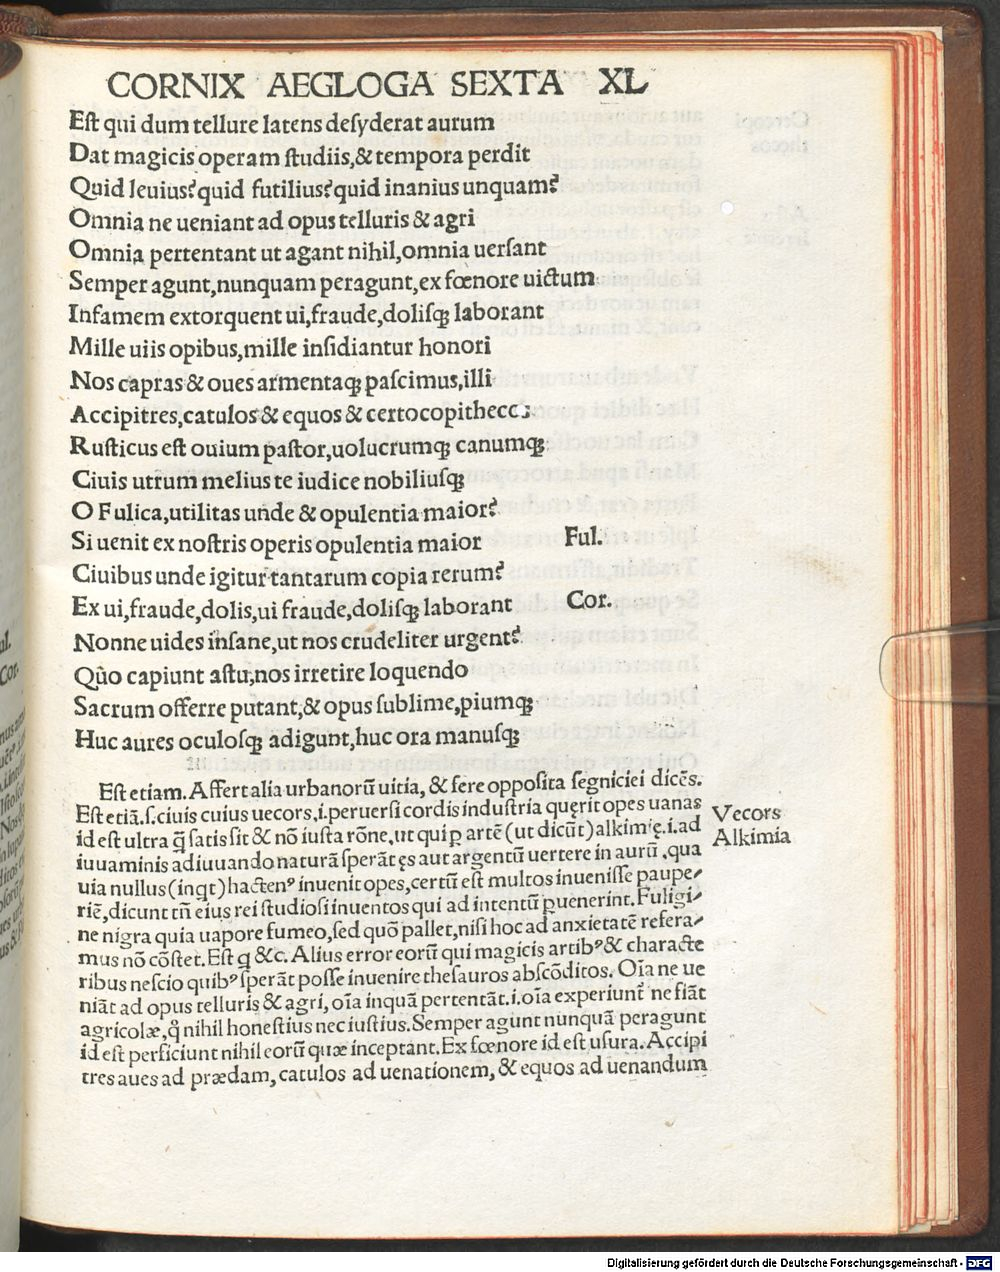 CORNIX AEGLOGA SEXTA XL
Est qui dum tellure latens desyderat aurum
Dat magicis operam studiis,& tempora perdit
Quid leuius?quid futilius?quid inanius unquam?
Omnia ne ueniant ad opus telluris & agri
Omnia pertentant ut agant nihil,omnia uersant
Semper agunt,nunquam peragunt,ex fœnore uictum
Infamem extorquent ui,fraude,dolisqꝫ laborant
Mille uiis opibus,mille insidiantur honori
Nos capras & oues armentaqꝫ pascimus,illi
Accipitres,catulos & equos & certocopithecos
Rusticus est ouium pastor,uolucrumqꝫ canumqꝫ
Ciuis utrum melius te iudice nobiliusqꝫ
O Fulica,utilitas unde & opulentia maior?
Si uenit ex nostris operis opulentia maior Ful.
Ciuibus unde igitur tantarum copia rerum?
Ex ui,fraude,dolis,ui fraude,dolisqꝫ laborant Cor.
Nonne uides insane,ut nos crudeliter urgent?
Quo capiunt astu,nos irretire loquendo
Sacrum offerre putant,& opus sublime,piumqꝫ
Huc aures oculosqꝫ adigunt,huc ora manusqꝫ
Est etiam. Affert alia urbanorũ uitia, & fere opposita segniciei dicẽs.
Est etiã.s.ciuis cuius uecors,i.peruersi cordis industria quęrit opes uanas Vecors
id est ultra q̃ satis sit & nõ iusta rõne,ut qui ꝑ artẽ (ut dicũt) alkimię.i.ad Alkimia
iuuaminis adiuuando naturã sperãt ęs aut argentũ uertere in aurũ .qua
uia nullus (inqt) hactenꝰ inuenit opes,certũ est multos inuenisse paupe⸗
riẽ,dicunt tñ eius rei studiosi inuentos qui ad intentũ ꝑuenerint. Fuligi⸗
ne nigra quia uapore fumeo,sed quõ pallet,nisi hoc ad anxietatẽ refera⸗
mus nõ cõstet. Est q &c. Alius error eorũ qui magicis artibꝰ & characte
ribus nescio quibꝰ sperãt posse inuenire thesauros abscõditos. Oĩa ne ue
niãt ad opus telluris & agri, oĩa inquã pertentãt.i.oĩa experiunt᷑ ne fiãt
agricolæ,q̃ nihil honestius nec iustius. Semper agunt nunquã peragunt
id est perficiunt nihil eorũ quæ inceptant. Ex fœnore id est usura. Accipi
tres aues ad prædam, catulos ad uenationem, & equos ad uenandum
Digitalisierung gefördert durch die Deutsche Forschungsgemeinschaft - DFG